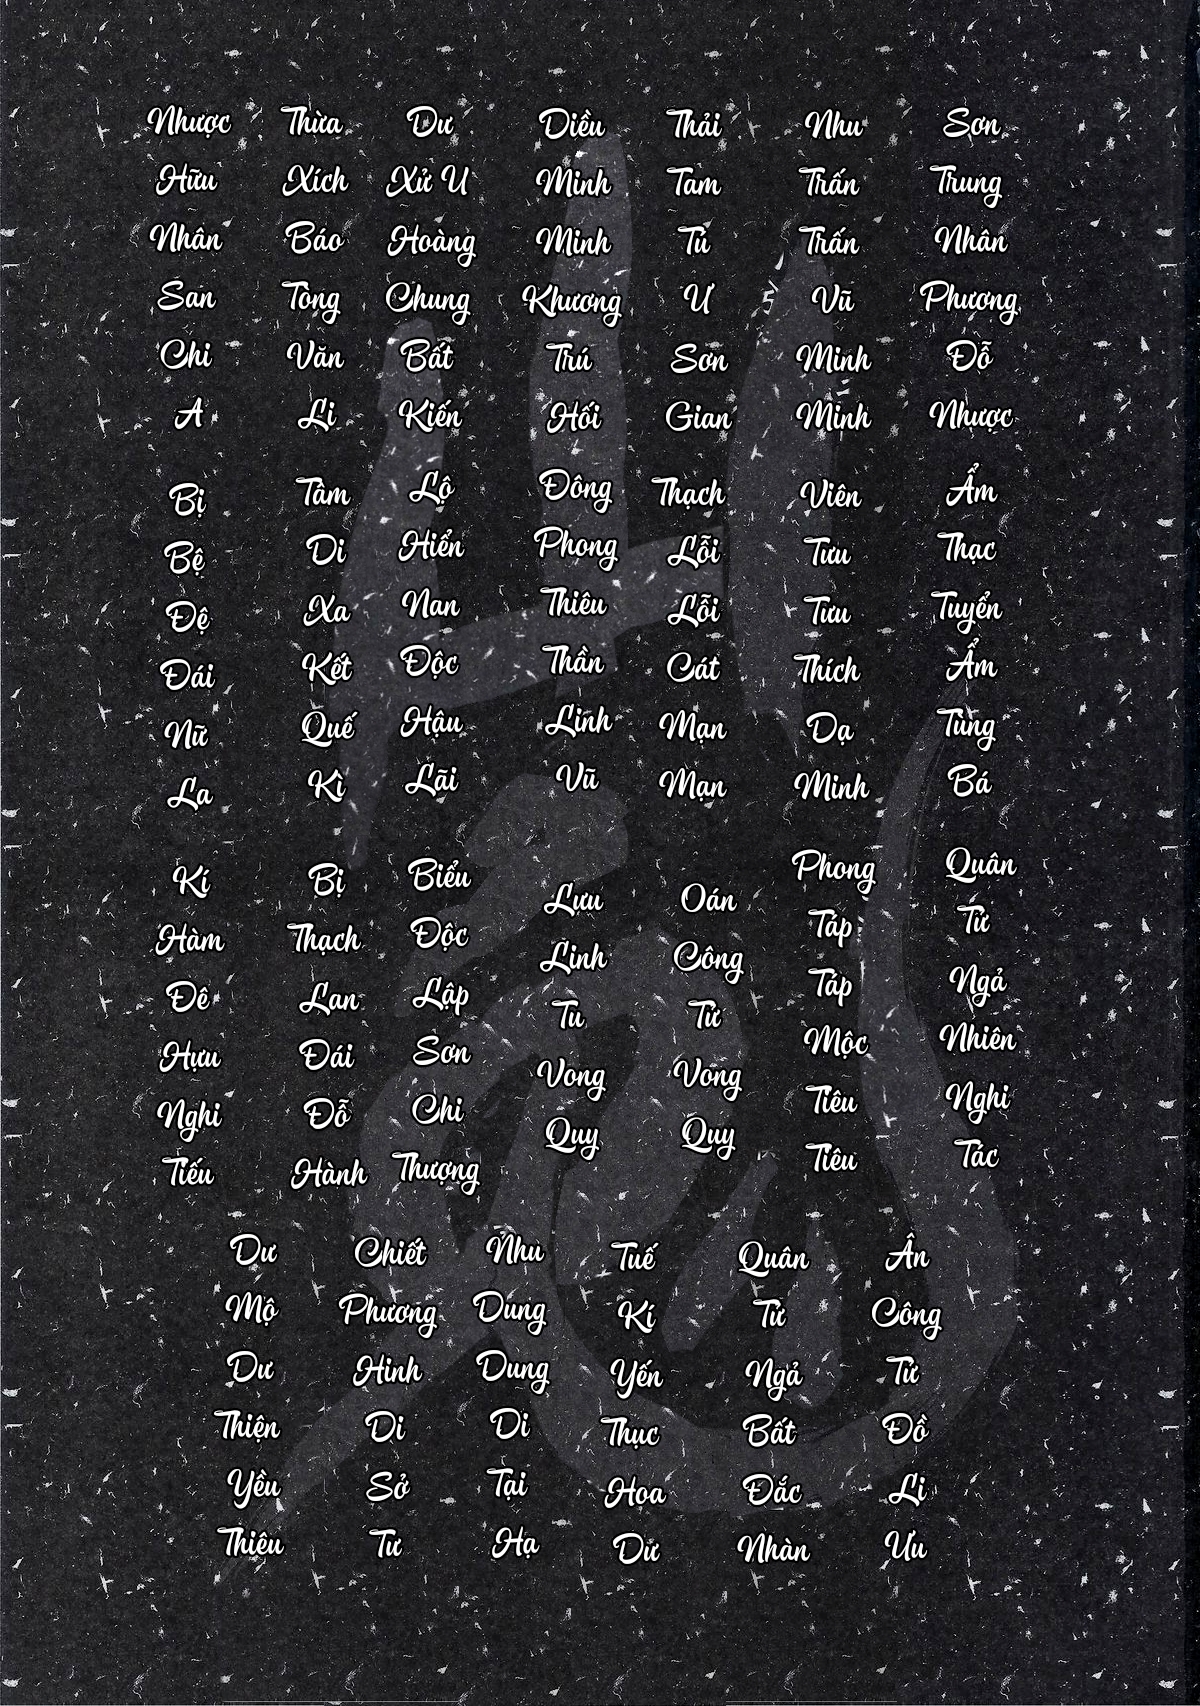 Nhược Hữu Nhân San Chi A
Bị Bệ Đệ Đái Nữ La
Kí Hàm Đê Hựu Nghi Tiếu
Dư Mộ Dư Thiện Yểu Thiêu
Thừa Xích Báo Tòng Văn Li
Tâm Di Xa Kết Quế Kì
Bị Thạch Lan Đái Đỗ Hành
Chiết Phương Hinh Di Sở Tư
Dư Xử U Hoàng Chung Bất Kiến
Lộ Hiển Nan Độc Hậu Lãi
Biểu Độc Lập Sơn Chi Thượng
Nhu Dung Dung Di Tại Hạ
Diều Minh Minh Khương Trú Hối
Đông Phong Thiêu Thần Linh Vũ
Lưu Linh Tu Vong Quy
Tuế Kí Yến Thục Hoa Dữ
Thải Tam Tú Ư Sơn Gian
Thạch Lỗi Lỗi Cát Mạn Mạn
Oán Công Tử Vong Quy
Quân Tử Ngả Bất Đắc Nhàn
Sơn Trung Nhân Phương Đỗ Nhược
Ẩm Thạc Tuyển Ẩm Tùng Bá
Quân Tử Ngả Nhiên Nghi Tác
Nhu Trấn Trấn Vũ Minh Minh
Viên Tưu Tưu Thích Dạ Minh
Phong Táp Táp Mộc Tiêu Tiêu
Ân Công Tử Đồ Li Ưu